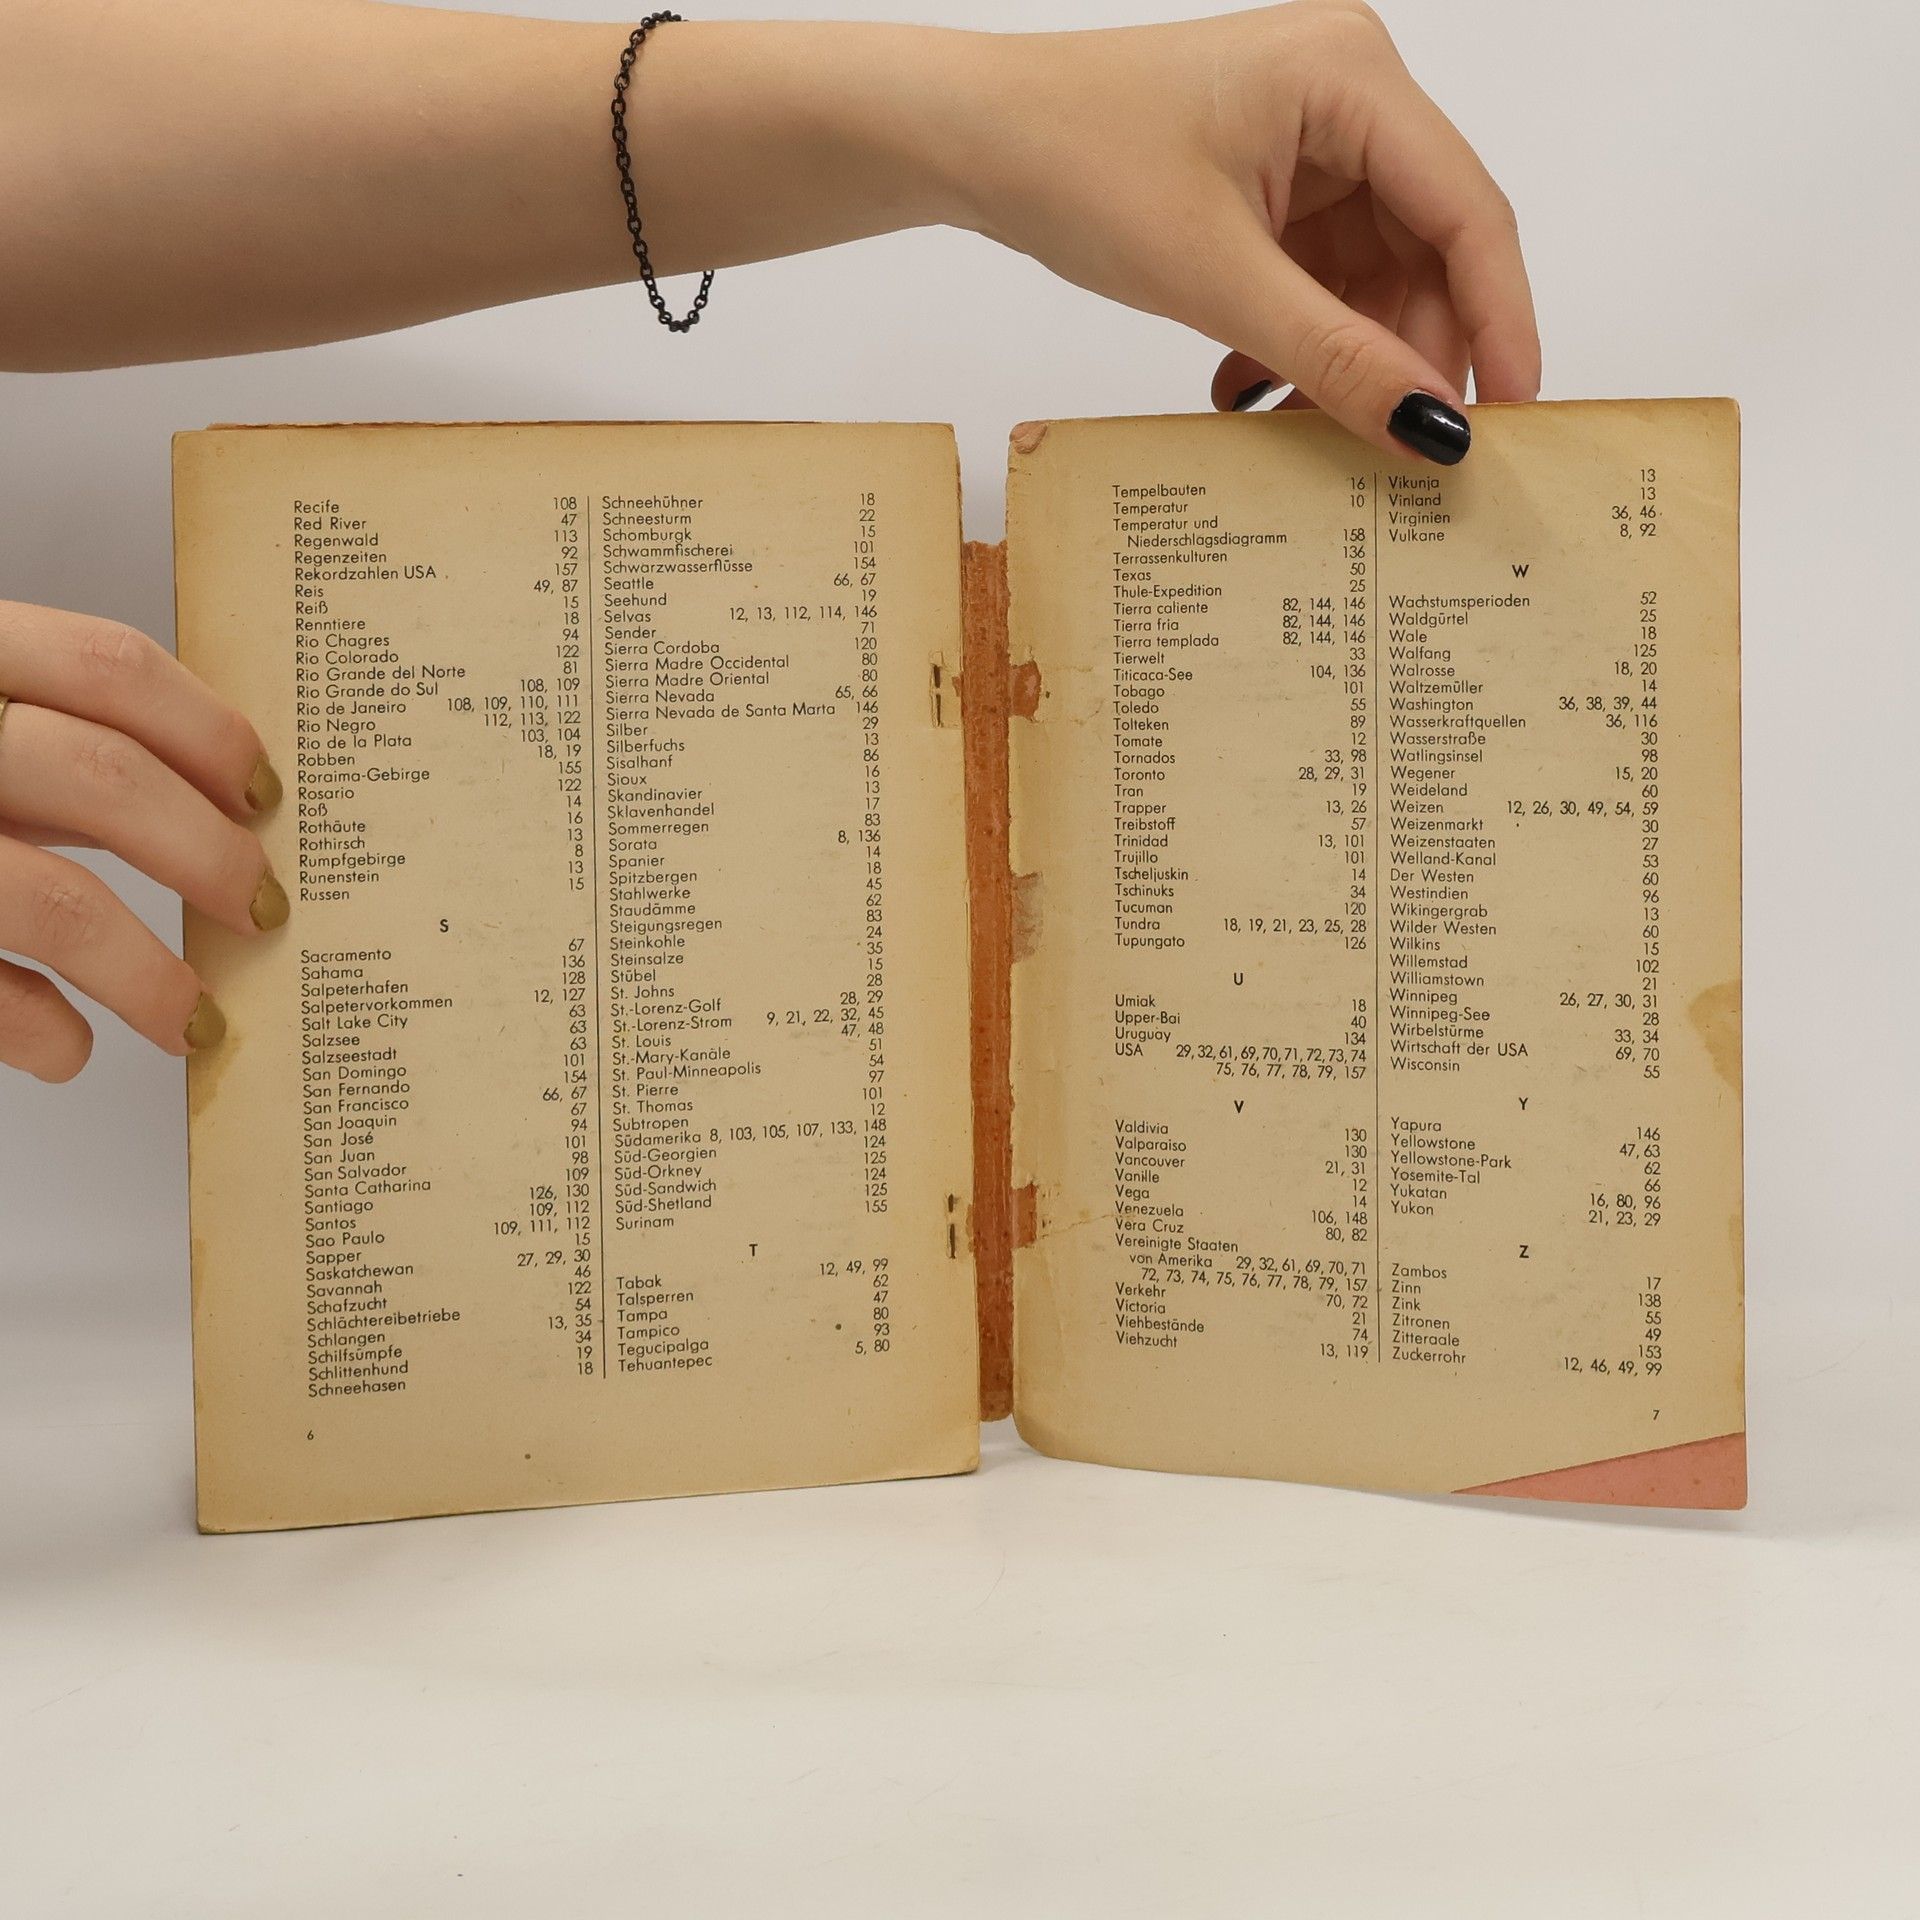 Recife 108
Red River 47
Regenwald 113
Regenzeiten 92
Rekordzahlen USA 157
Reis 49, 87
Reiß 15
Renntiere 18
Rio Chagres 94
Rio Colorado 122
Rio Grande del Norte 81
Rio Grande do Sul 108, 109
Rio de Janeiro 108, 109, 110, 111
Rio Negro 112, 113, 122
Rio de la Plata 103, 104
Robben 18, 19
Roraima-Gebirge 155
Rosario 122
Roß 14
Rothäute 16
Rothirsch 13
Rumpfgebirge 8
Runenstein 13
Russen 15
S
Sacramento 67
Sahama 136
Salpeterhafen 128
Salpetervorkommen 12, 127
Salt Lake City 63
Salzsee 63
Salzseestadt 63
San Domingo 101
San Fernando 154
San Francisco 66, 67
San Joaquin 67
San José 94
San Juan 101
San Salvador 98
Santa Catharina 109
Santiago 126, 130
Santos 109, 112
Sao Paulo 109, 111, 112
Sapper 15
Saskatchewan 27, 29, 30
Savannah 46
Schafzucht 122
Schlächtereibetriebe 54
Schlangen 13, 35
Schilfsümpfe 34
Schlittenhund 19
Schneehasen 18
Schneehühner 18
Schneesturm 22
Schomburgk 15
Schwammfischerei 101
Schwarzwasserflüsse 154
Seattle 66, 67
Seehund 19
Selvas 12, 13, 112, 114, 146
Sender 71
Sierra Cordoba 120
Sierra Madre Occidental 80
Sierra Madre Oriental 80
Sierra Nevada 65, 66
Sierra Nevada de Santa Marta 146
Silber 29
Silberfuchs 13
Sisalhanf 86
Sioux 16
Skandinavier 13
Sklavenhandel 17
Sommerregen 83
Sorata 8, 136
Spanier 14
Spitzbergen 18
Stahlwerke 45
Staudämme 62
Steigungsregen 83
Steinkohle 24
Steinsalze 35
Stübel 15
St. Johns 28
St.-Lorenz-Golf 28, 29
St.-Lorenz-Strom 9, 21, 22, 32, 45
St. Louis 47, 48
St.-Mary-Kanäle 51
St. Paul-Minneapolis 54
St. Pierre 97
St. Thomas 101
Subtropen 12
Südamerika 8, 103, 105, 107, 133, 148
Süd-Georgien 124
Süd-Orkney 125
Süd-Sandwich 124
Süd-Shetland 125
Surinam 155
T
Tabak 12, 49, 99
Talsperren 62
Tampa 47
Tampico 80
Tegucipalga 93
Tehuantepec 5, 80
6
Tempelbauten 16
Temperatur 10
Temperatur und
Niederschlagsdiagramm 158
Terrassenkulturen 136
Texas 50
Thule-Expedition 25
Tierra caliente 82, 144, 146
Tierra fria 82, 144, 146
Tierra templada 82, 144, 146
Tierwelt 33
Titicaca-See 104, 136
Tobago 101
Toledo 55
Tolteken 89
Tomate 12
Tornados 33, 98
Toronto 28, 29, 31
Tran 19
Trapper 13, 26
Treibstoff 57
Trinidad 13, 101
Trujillo 101
Tscheljuskin 14
Tschinuks 34
Tucuman 120
Tundra 18, 19, 21, 23, 25, 28
Tupungato 126
U
Umiak 18
Upper-Bai 40
Uruguay 134
USA 29, 32, 61, 69, 70, 71, 72, 73, 74
75, 76, 77, 78, 79, 157
V
Valdivia 130
Valparaiso 130
Vancouver 21, 31
Vanille 12
Vega 14
Venezuela 106, 148
Vera Cruz 80, 82
Vereinigte Staaten
von Amerika 29, 32, 61, 69, 70, 71
72, 73, 74, 75, 76, 77, 78, 79, 157
Verkehr 70, 72
Victoria 21
Viehbestände 74
Viehzucht 13, 119
Vikunja 13
Vinland 13
Virginien 36, 46
Vulkane 8, 92
W
Wachstumsperioden 52
Waldgürtel 25
Wale 18
Walfang 125
Walrosse 18, 20
Waltzemüller 14
Washington 36, 38, 39, 44
Wasserkraftquellen 36, 116
Wasserstraße 30
Watlingsinsel 98
Wegener 15, 20
Weideland 60
Weizen 12, 26, 30, 49, 54, 59
Weizenmarkt 30
Weizenstaaten 27
Welland-Kanal 53
Der Westen 60
Westindien 96
Wikingergrab 13
Wilder Westen 60
Wilkins 15
Willemstad 102
Williamstown 21
Winnipeg 26, 27, 30, 31
Winnipeg-See 28
Wirbelstürme 33, 34
Wirtschaft der USA 69, 70
Wisconsin 55
Y
Yapura 146
Yellowstone 47, 63
Yellowstone-Park 62
Yosemite-Tal 66
Yukatan 16, 80, 96
Yukon 21, 23, 29
Z
Zambos 17
Zinn 138
Zink 55
Zitronen 49
Zitteraale 153
Zuckerrohr 12, 46, 49, 99
7